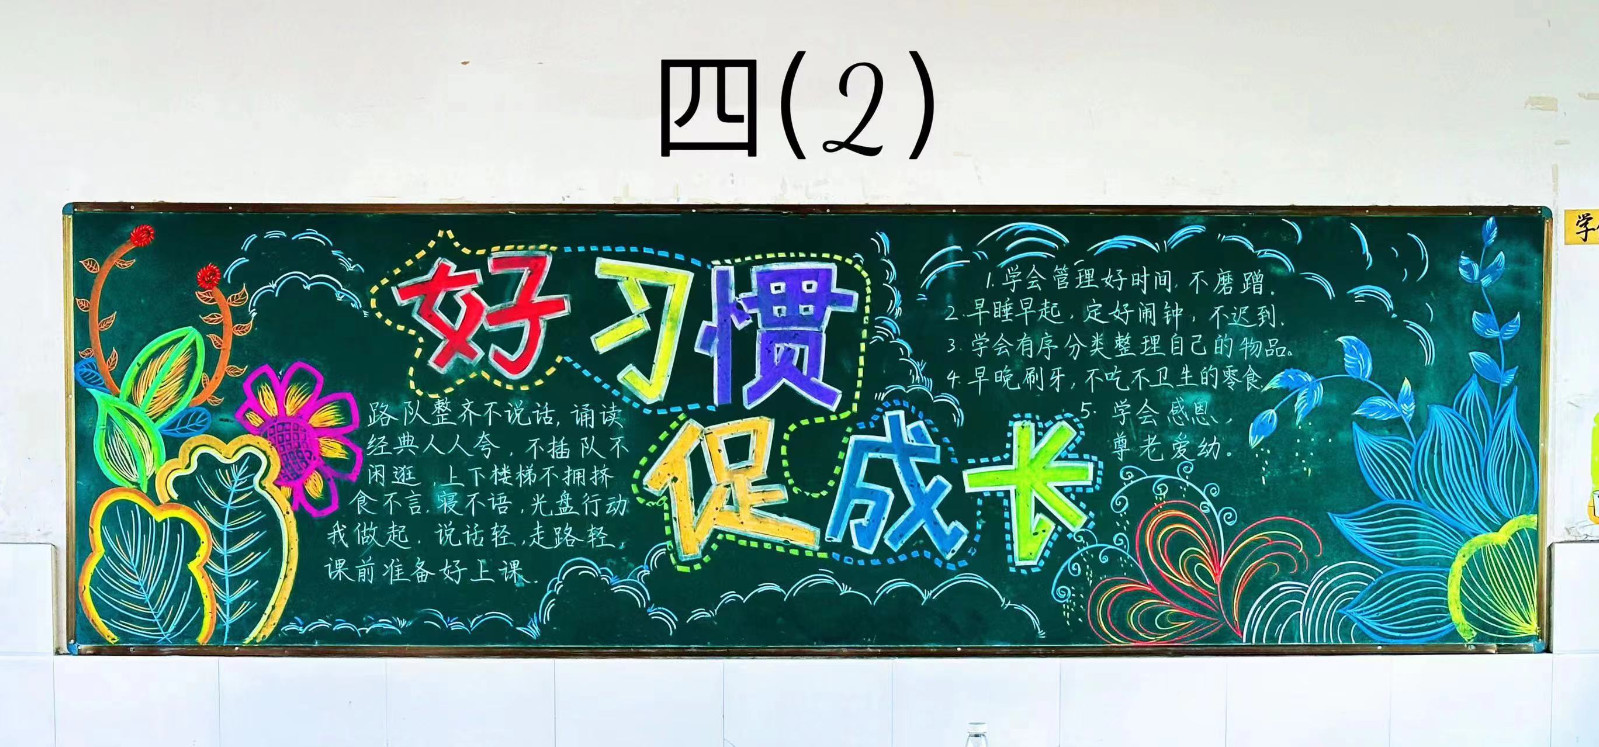 四(2)
好习惯
促成长
路队整齐不说话，诵读
经典人人夸，不插队不
闲逛，上下楼梯不拥挤
食不言，寝不语，光盘行动
我做起，说话轻，走路轻，
课前准备好上课。
1.学会管理好时间，不磨蹭。
2.早睡早起，定好闹钟，不迟到。
3.学会有序分类整理自己的物品。
4.早晚刷牙，不吃不卫生的零食。
5.学会感恩，
尊老爱幼。
学